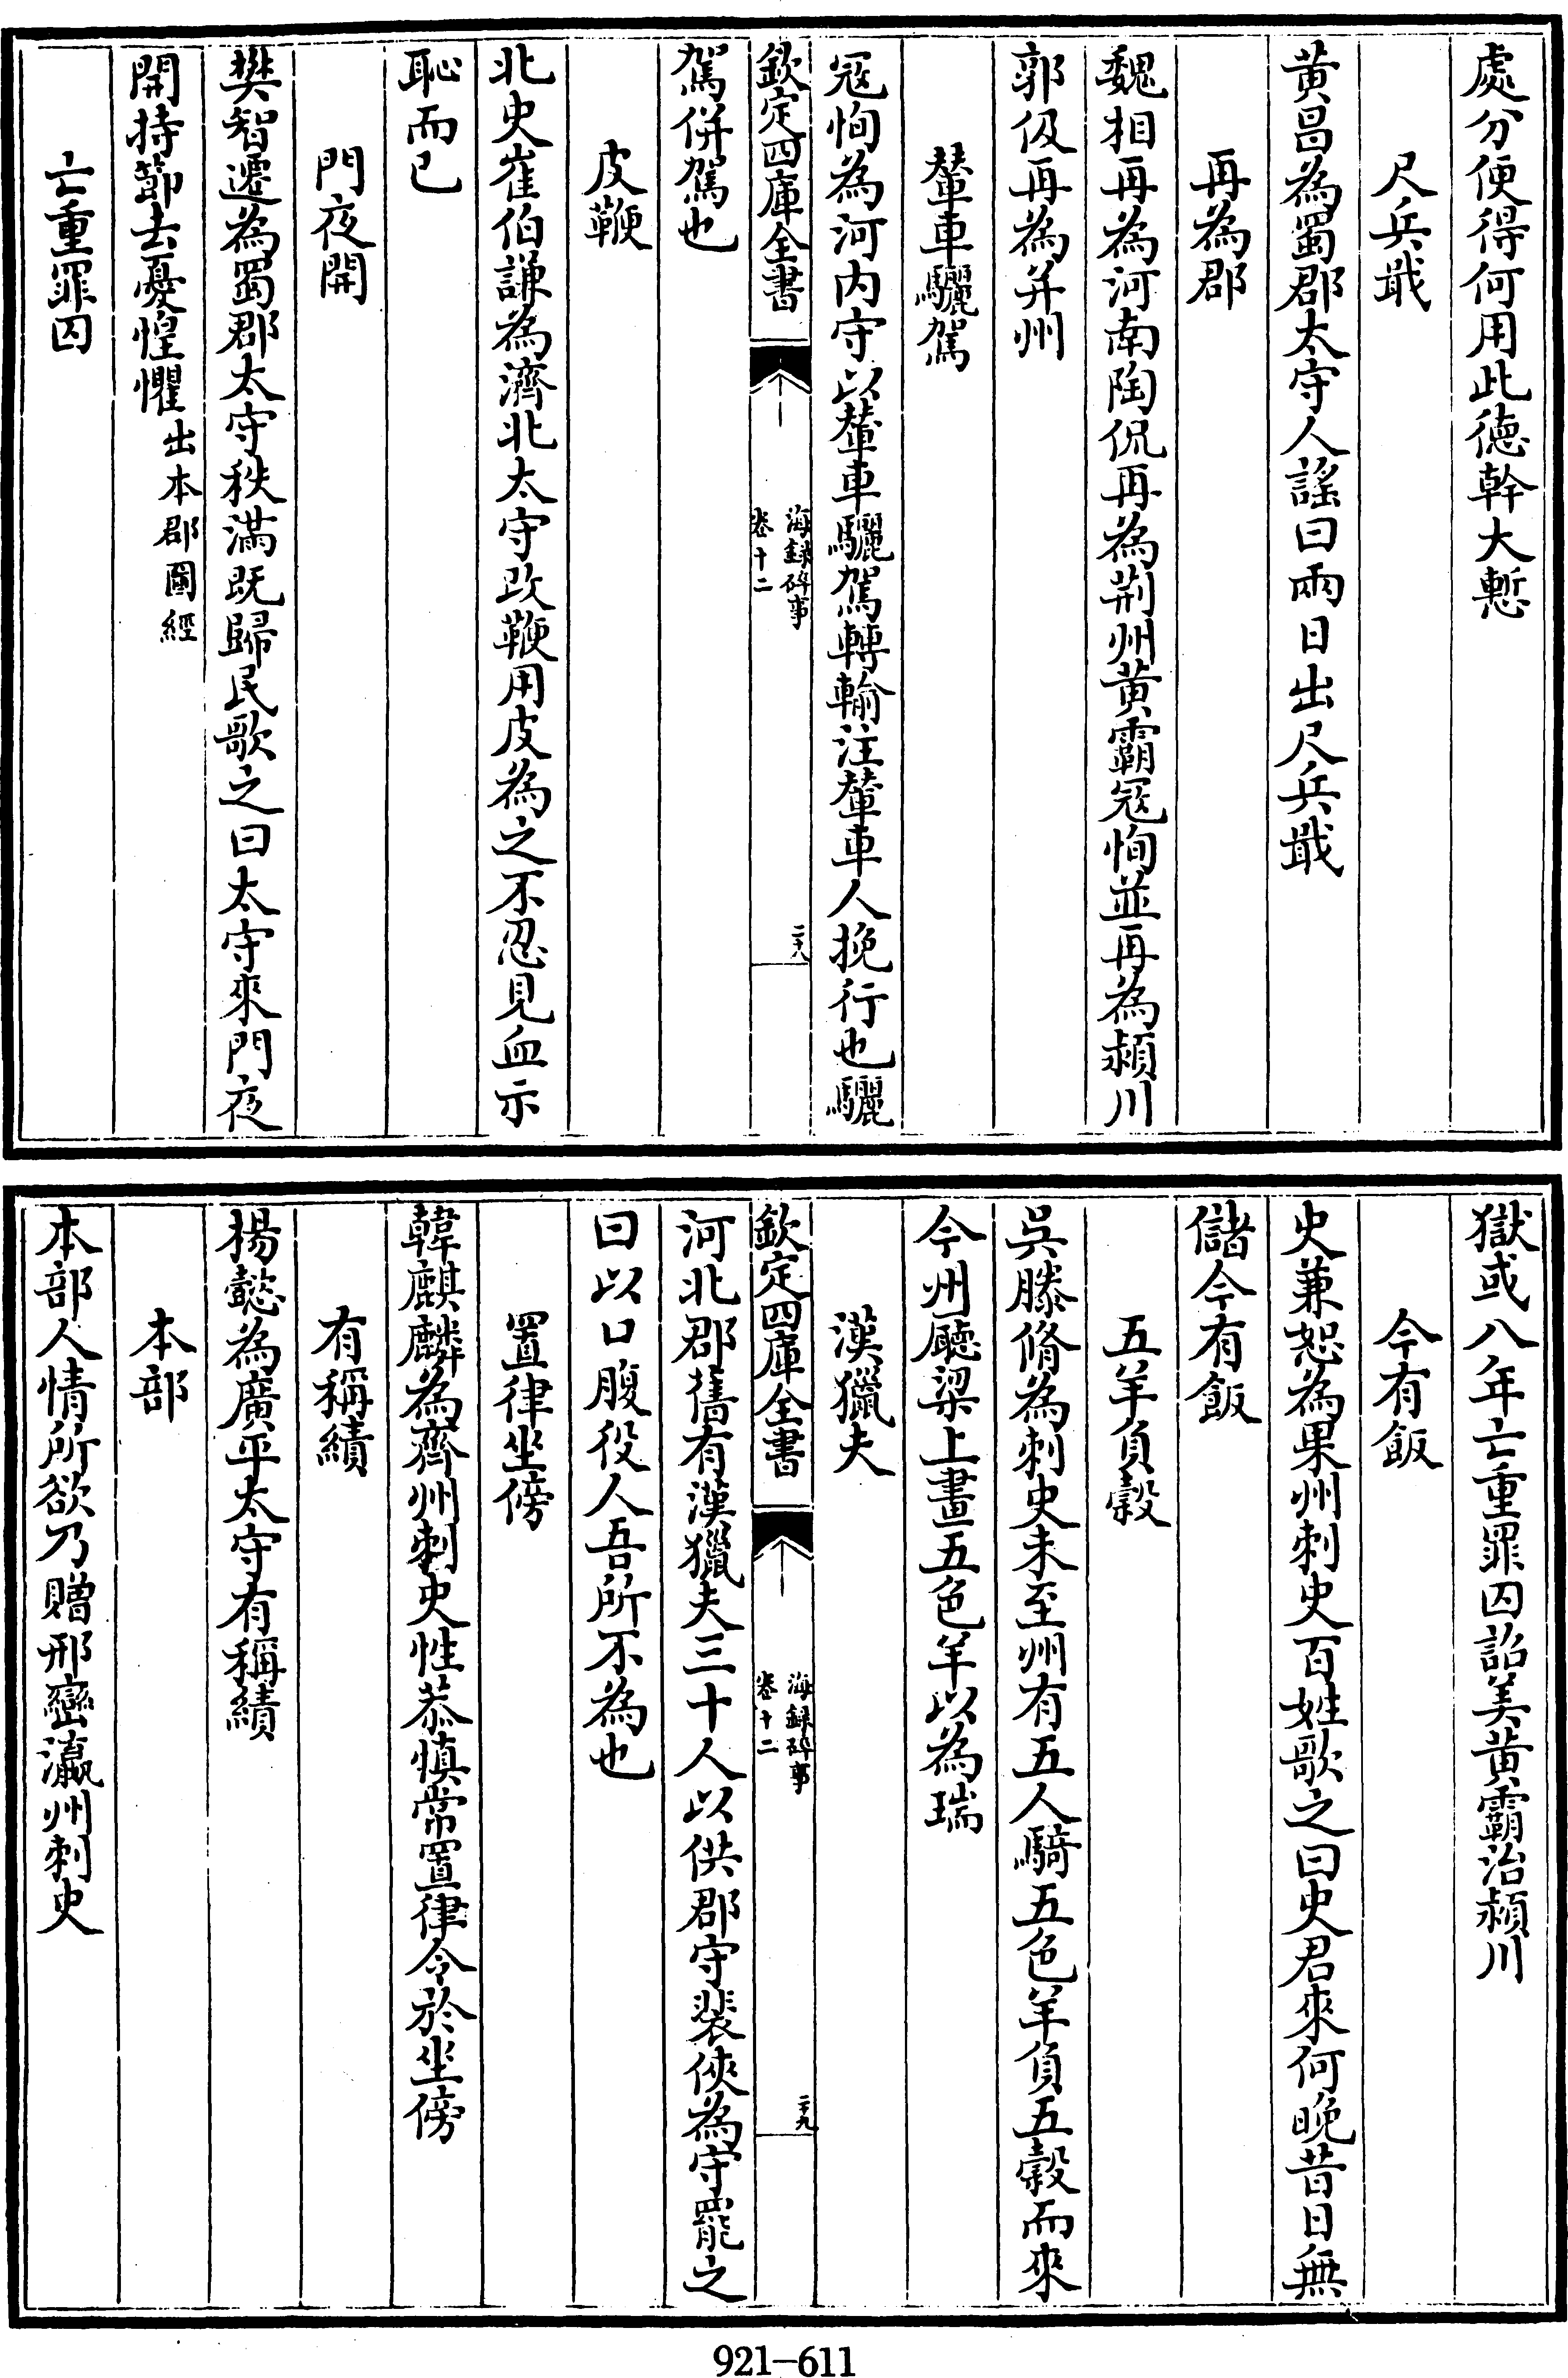 處分便得何用此德幹大慙
尺兵戢
黄昌為蜀郡太守人謡曰兩日出尺兵戢
再為郡
魏相再為河南陶侃再為荆州黄霸冦恂並再為潁川
郭伋再為并州
輦車驪駕
冦恂為河内守以輦車驪駕轉輸注輦車人挽行也驪
欽定四庫全書
海録碎事
卷十二
二十八
駕併駕也
皮鞭
北史崔伯謙為濟北太守改鞭用皮為之不忍見血示
恥而已
門夜開
樊智遷為蜀郡太守秩滿既歸民歌之曰太守來門夜
開持節去憂惶懼出本郡圖經
亡重罪囚
獄或八年亡重罪囚詔美黄霸治潁川
今有飯
史兼恕為果州刺史百姓歌之曰史君來何晚昔日無
儲今有飯
五羊負榖
吳滕脩為刺史未至州有五人騎五色羊負五榖而來
今州廳梁上畫五色羊以為瑞
漢獵夫
欽定四庫全書
海録碎事
卷十二
二十九
河北郡舊有漢獵夫三十人以供郡守裴俠為守罷之
曰以口腹役人吾所不為也
置律坐傍
韓麒麟為齊州刺史性恭慎常置律令於坐傍
有稱績
揚懿為廣平太守有稱績
本部
本部人情所欲乃贈邢巒瀛州刺史
921-611